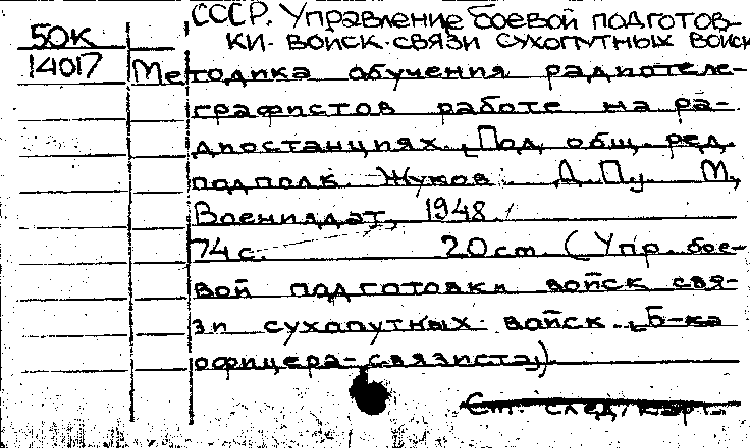 СССР. Управление боевой подготов-
50К
ки войск связи сухопутных войск
14017 Методика обучения радиотеле-
графистов работе на ра-
диостанциях. Под общ. ред.
подполк. Жуков Д. П. М.,
Воениздат, 1948.
74 с. 20 см. (Упр. бое-
вой подготовки войск свя-
зи сухопутных войск. Б-ка
офицера-связиста)
См. след. карт.